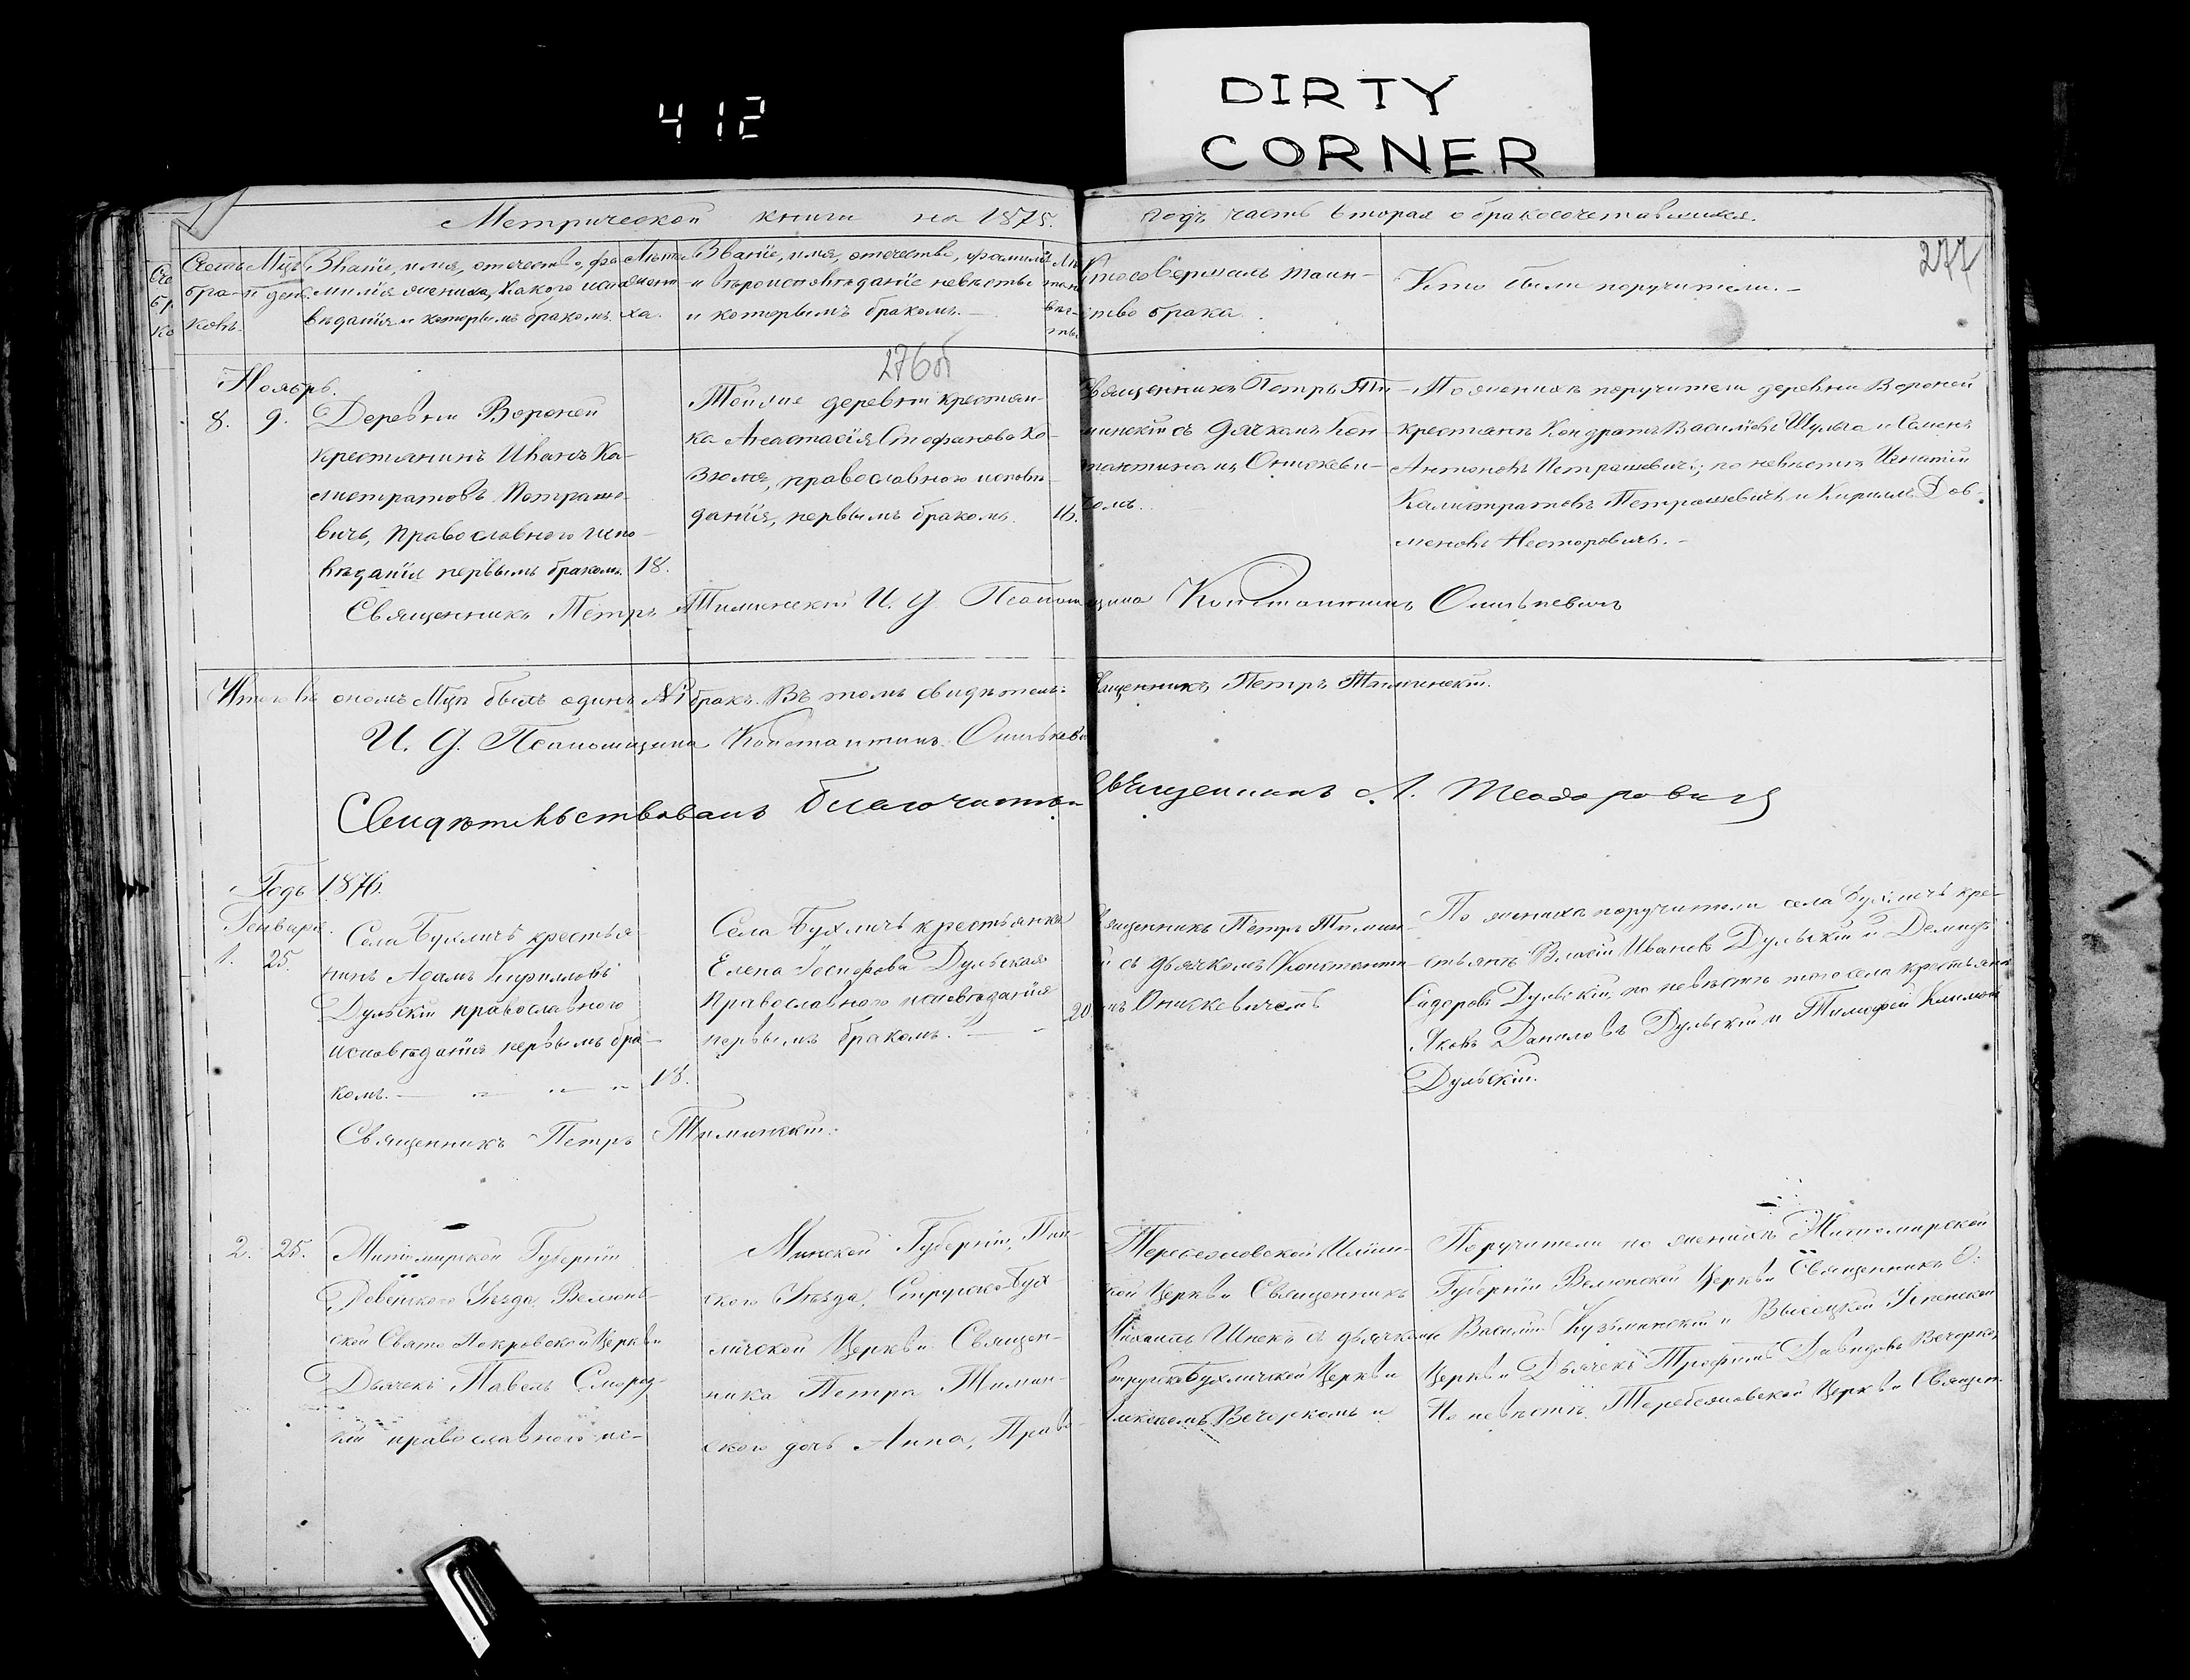 DIRTY
CORNER
412
Метрической книги на 1875. годъ часть вторая о бракосочетавшихся.
277
Счетъ бра-ковъ.
Мцъ и день.
Званіе, имя, отечество, фа-
милія жениха, какого испо-
вѣданія и которымъ бракомъ.
Лѣта жени-ха.
Званіе, имя, отечество, фамилія
и вѣроисповѣданіе невѣсты
и которымъ бракомъ.—
Кто совершалъ таин-
ство брака.
Кто были поручители.—
276об
Ноябрь.
8. 9.
Деревни Вороней
крестьянинъ Иванъ Ка-
листратовъ Петраше-
вичъ, православного испо-
вѣданія первымъ бракомъ. 18.
Тойже деревни крестьян-
ка Анастасія Стефанова Ко-
зюля, православного исповѣ-
данія, первымъ бракомъ. 16.
Священникъ Петръ Ти-
минскій съ дячкомъ Кон-
стантиномъ Онискеви-
чомъ.
По женихѣ поручители деревни Вороней
крестьяне Кондратъ Василіевъ Шульга и Семенъ
Антоновъ Петрашевичъ; по невѣстѣ Игнатій
Калистратовъ Петрашевичъ и Кириллъ Дов-
меновъ Несторовичъ.—
Священникъ Петръ Тиминскій И. д. Псаломщика Константинъ Онискевичъ
Итого въ ономъ Мцѣ былъ одинъ №1 бракъ. Въ томъ свидѣтель: Священникъ Петръ Тиминскій.
И. д. Псаломщика Константинъ Онискеви
Свидѣтельствовалъ благочинный Священникъ А. Теодоровичъ
Годъ 1876.
Генваря.
1. 25.
Села Бухличъ крестья-
нинъ Адамъ Кирилловъ
Дульскій православного
исповѣданія первымъ бра-
комъ.— 18.
Села Бухличъ крестьянка
Елена Дульская
Православного исповѣданія
первымъ бракомъ.— 20
Священникъ Петръ Тимин-
й съ дьячкомъ Константи-
нъ Онискевичемъ
По женихѣ поручители села Бухличъ кре-
стьяне Власій Ивановъ Дульскій и Демидъ
Сидоровъ Дульскій; по невѣстѣ тогожъ села крестьяне
Яковъ Даниловъ Дульскій и Тимофей Климов
Дульскій.
Священникъ Петръ Тиминскій.
2. 25.
Житомирской Губерніи
Ровенского Уѣзда, Велюнь-
ской Свято Покровской Церкви
Дьячекъ Павелъ Смород-
кій православного ис-
Минской Губерніи, Пин-
ского Уѣзда, Стружско Бух
личской Церкви Священ-
ника Петра Тимин-
ского дочь Анна, Право-
Теребежовской Ильин-
кой Церкви Священникъ
Михаилъ съ дьячкомъ
Стружско Бухличской Церкви
Вечоркомъ и
Поручители по женихѣ Житомирской
Губерніи Велюнской Церкви Священникъ О:
Василій Кузьминскій и Высоцкой Успенской
Церкви Дьячекъ Трофимъ Давидовъ Вечорко,
По невѣстѣ Теребежовской Церкви Священ-